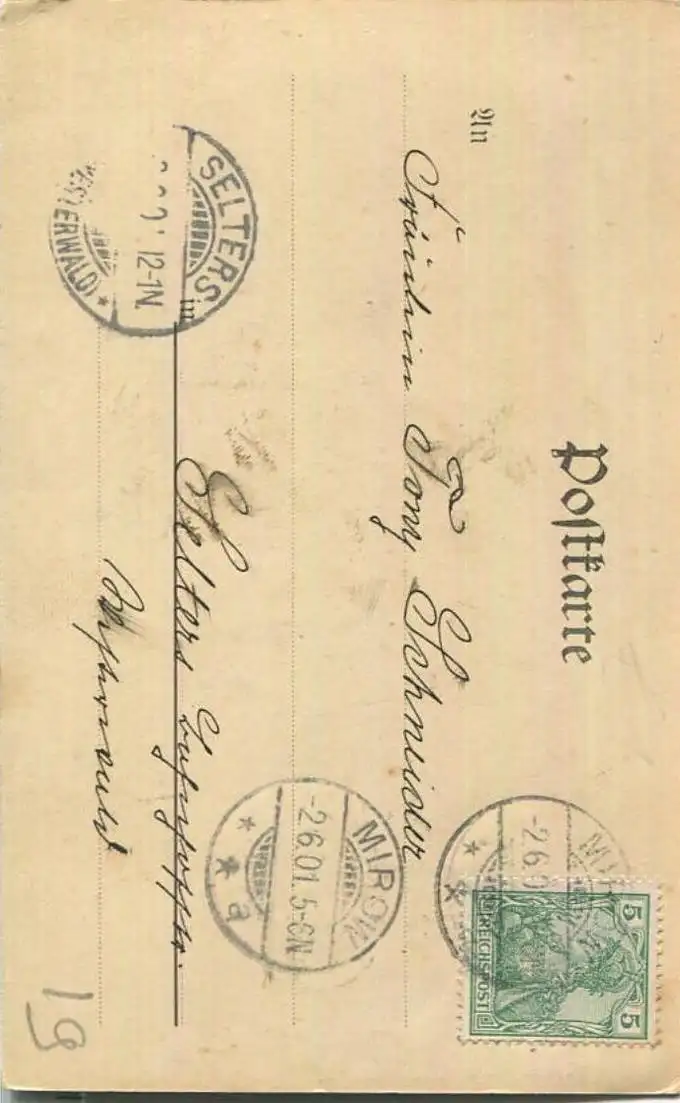 Postkarte
An
Fräulein Tony Schneider
in Selters
Westerwald
MIROW
-2.6.01.5-6N
* * a
MI
-2.6.0
5 5
REICHSPOST
SELTERS
12-1N.
ESTERWALD) *
19